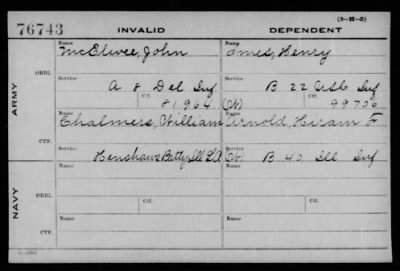 76743
INVALID
DEPENDENT
(3-H-3)
ARMY
ORIG.
Name
McElwee, John
Name
Ames, Henry
Service
A 8 Del Inf
Service
B 22 USC Inf
Ctf.
81964 (W)
Ctf.
99706
CTF.
Name
Chalmers, William
Arnold, Hiram F
Service
Henshaws Batty Ill L.A
(W) B 40 Ill Inf
NAVY
ORIG.
Name
Name
Service
Ctf.
Service
Ctf.
CTF.
Name
Name
Service
Service